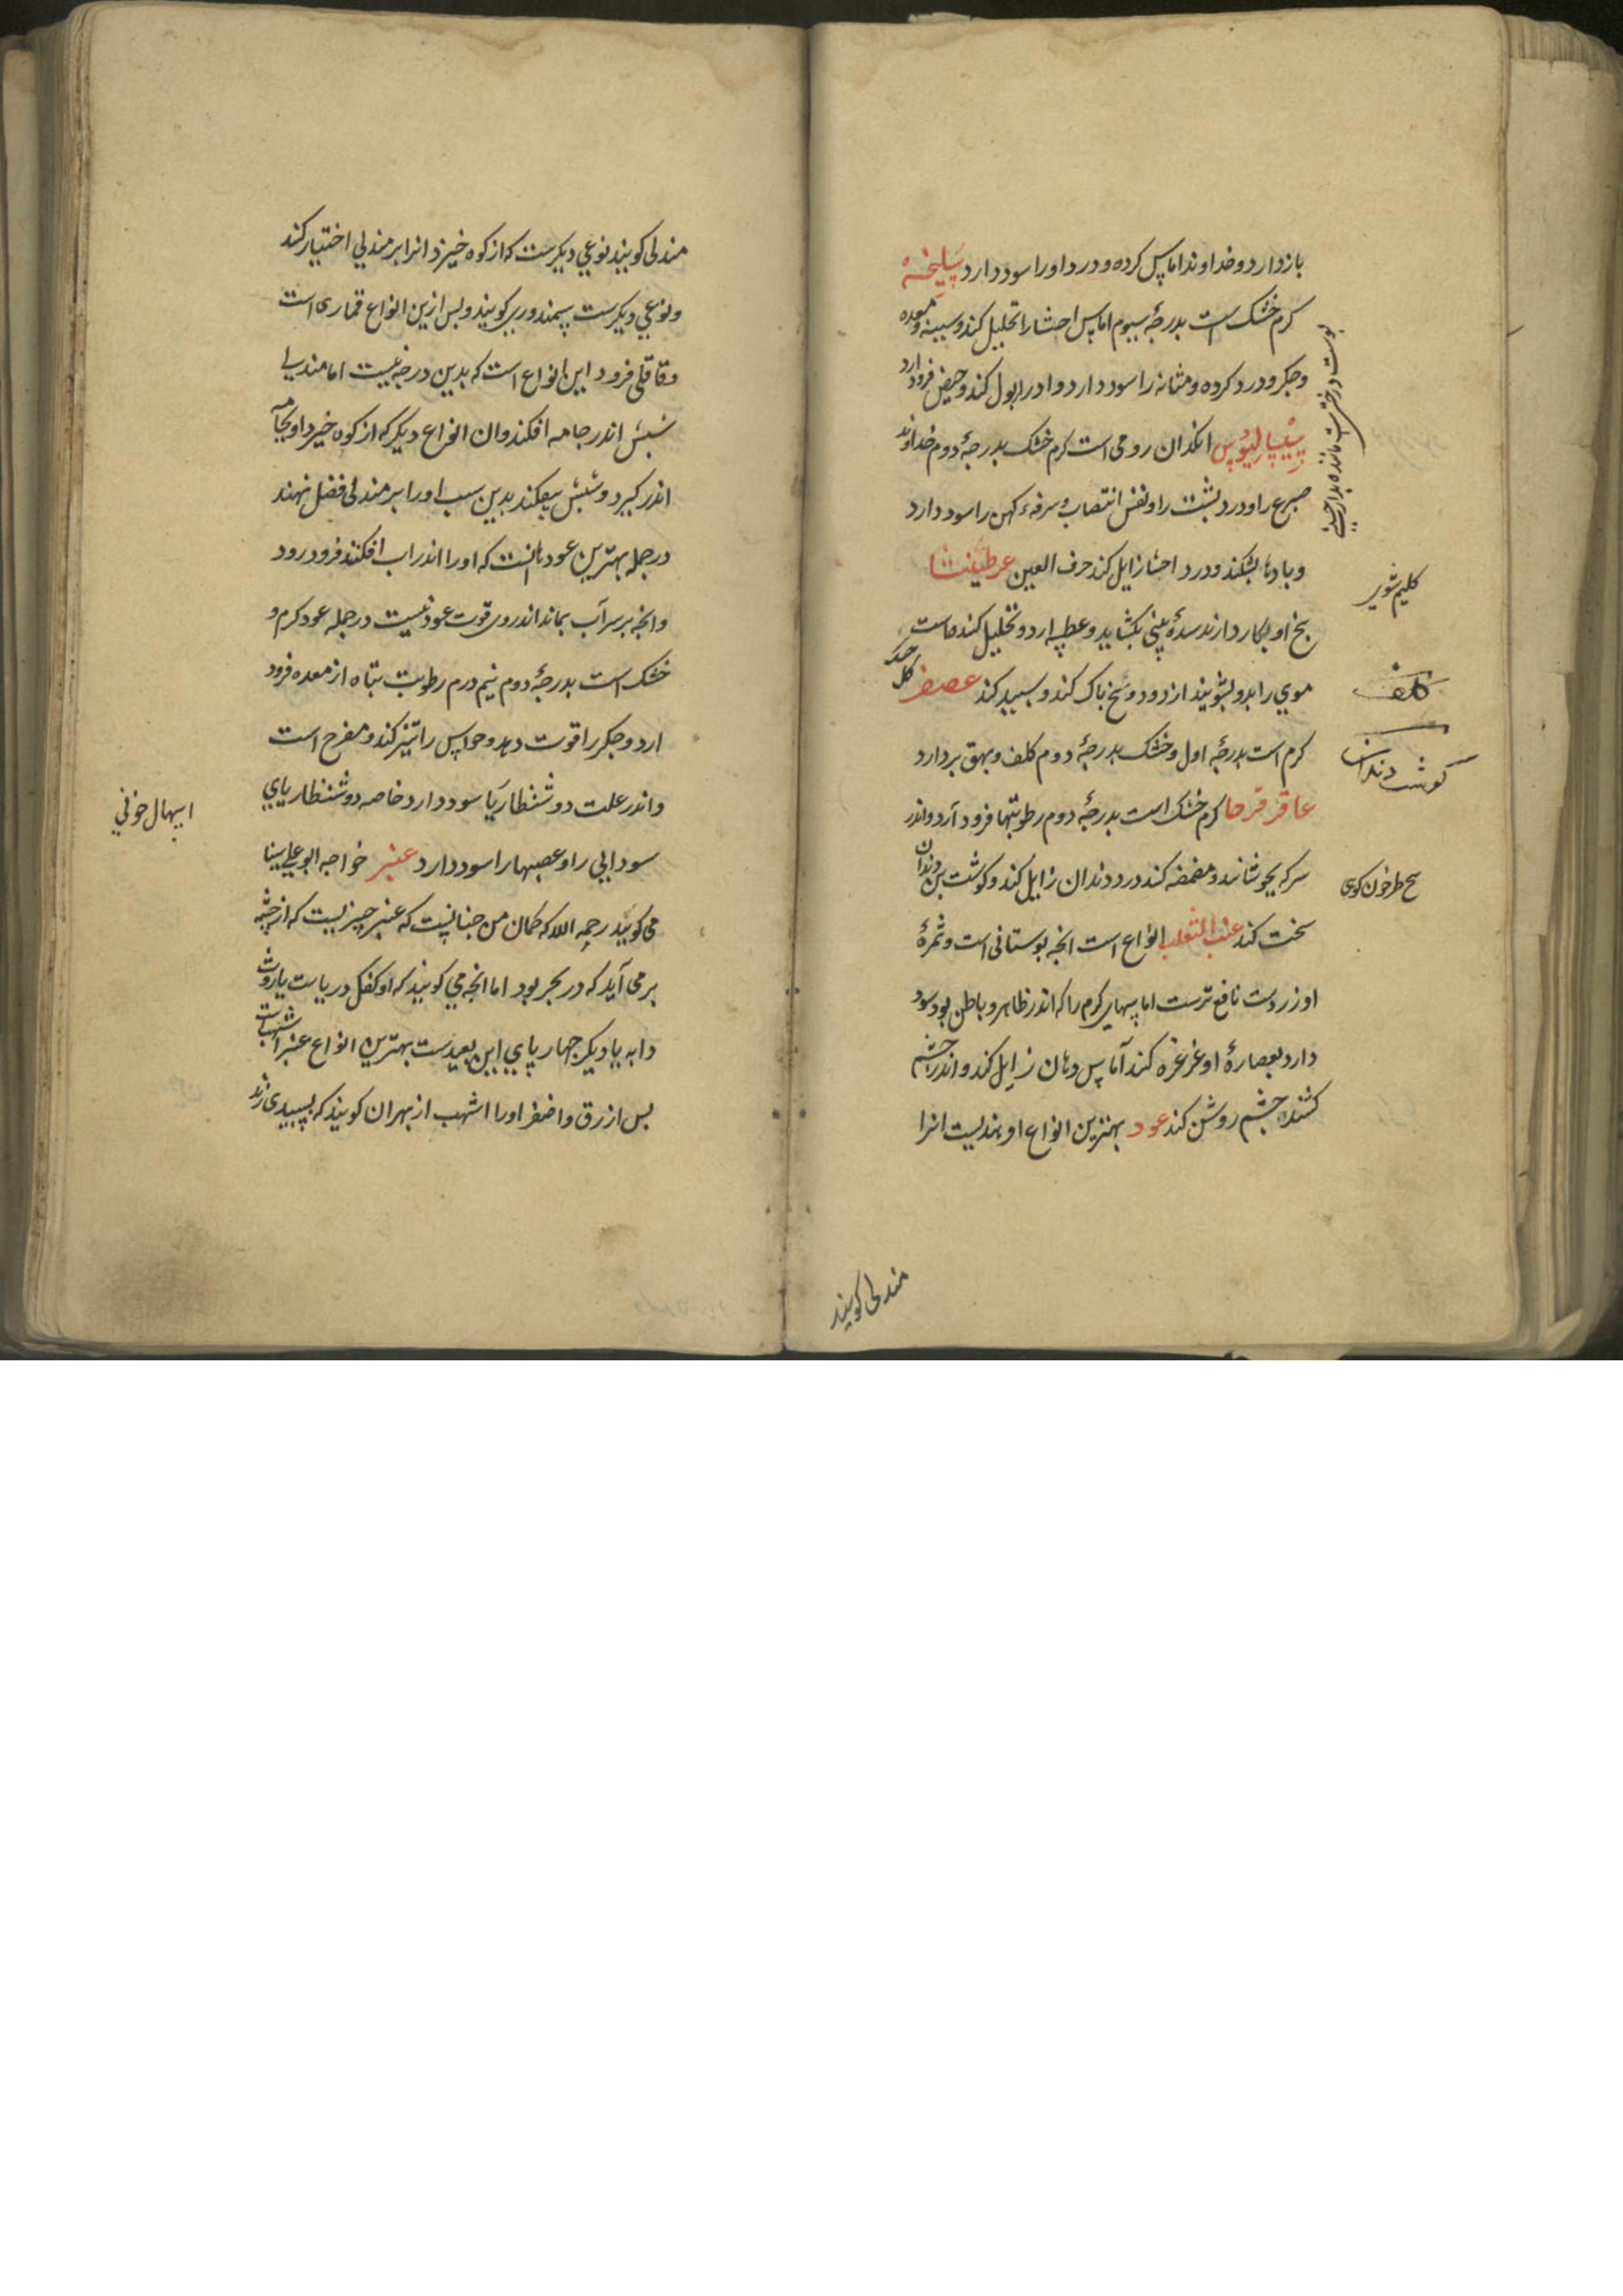 بازدارد و خداوند اماس کرده و درد اورا سود دارد سلیخهٔ
کرم خشک است بدرجهٔ سیوم اماس احشا را تحلیل کند و سینه و معده
و جکر و درد کرده و مثانه را سود دارد و ادرار بول کند و حیض فرود ارد
سیسالیوس انکدان رومی است کرم خشک بدرجهٔ دوم خداوند
صرع را و درد بشت را و نفس انتصاب و سرفهٔ کهن را سود دارد
و بادها بشکند و درد احشا زایل کند حرف العین عرطنیثا
بخ او بکار دارند سدهٔ بینی بکشاید و عطسه ارد و تحلیل کند
موی را بدو بشویند از دود و سخ باک کند و سبید کند عصفر
کرم است بدرجهٔ اول و خشک بدرجهٔ دوم کلف و بهق بردارد
عاقرقرحا کرم خشک است بدرجهٔ دوم رطوبتها فرود آرد و اندر
سرکه بجوشانند و مضمضه کند درد دندان زایل کند و کوشت بن دندان
سخت کند عنب الثعلب انواع است انجه بوستانی است و ثمرهٔ
او زردست نافع ترست اماسهای کرم را که اندر ظاهر و باطن بود سود
دارد بعصارهٔ او غرغره کند آماس دهان زایل کند و اندر چشم
کشند چشم روشن کند عود بهترین انواع او هندیست انرا
کلیم شوی
کلف
کوشت دندان
طرخون کوی
مندلی کویند
مندلی کویند نوعی دیکرست که از کوه خیزد انرا بر مندلی اختیار کند
و نوعی دیکرست سمندوری کویند و بس ازین انواع قماری است
و قاقلی فرود این انواع است که بدین درجه نیست اما مندلی
شبش اندر جامه افکند و ان انواع دیکر که از کوه خیزد او بجامه
اندر کیرد و شبش بیفکند بدین سبب او را بر مندلی فضل نهند
در جمله بهترین عود ها انست که او را اندر اب افکنند فرود رود
و انجه بر سر آب بماند اندر وی قوت عود نیست در جمله عود کرم و
خشک است بدرجهٔ دوم نیم درم رطوبت تباه از معده فرود
ارد و جکر را قوت دهد و حواس را تیز کند و مفرح است
و اندر علت دوشنطاریا سود دارد خاصه دوشنطاریای
سودایی را و عصبها را سود دارد عنبر خواجه ابو علی سینا
می کوید رحمه الله که کمان من جنانست که عنبر چیزیست که از چشمه
بر می آید که در بحر بود اما انجه می کویند که او کفک دریاست یا روث
دابه یا دیکر جهار بای این بعیدست بهترین انواع عنبر اشهب است
بس ازرق و اصفر اورا اشهب از بهر ان کویند که بسبیدی زند
اسهال خونی